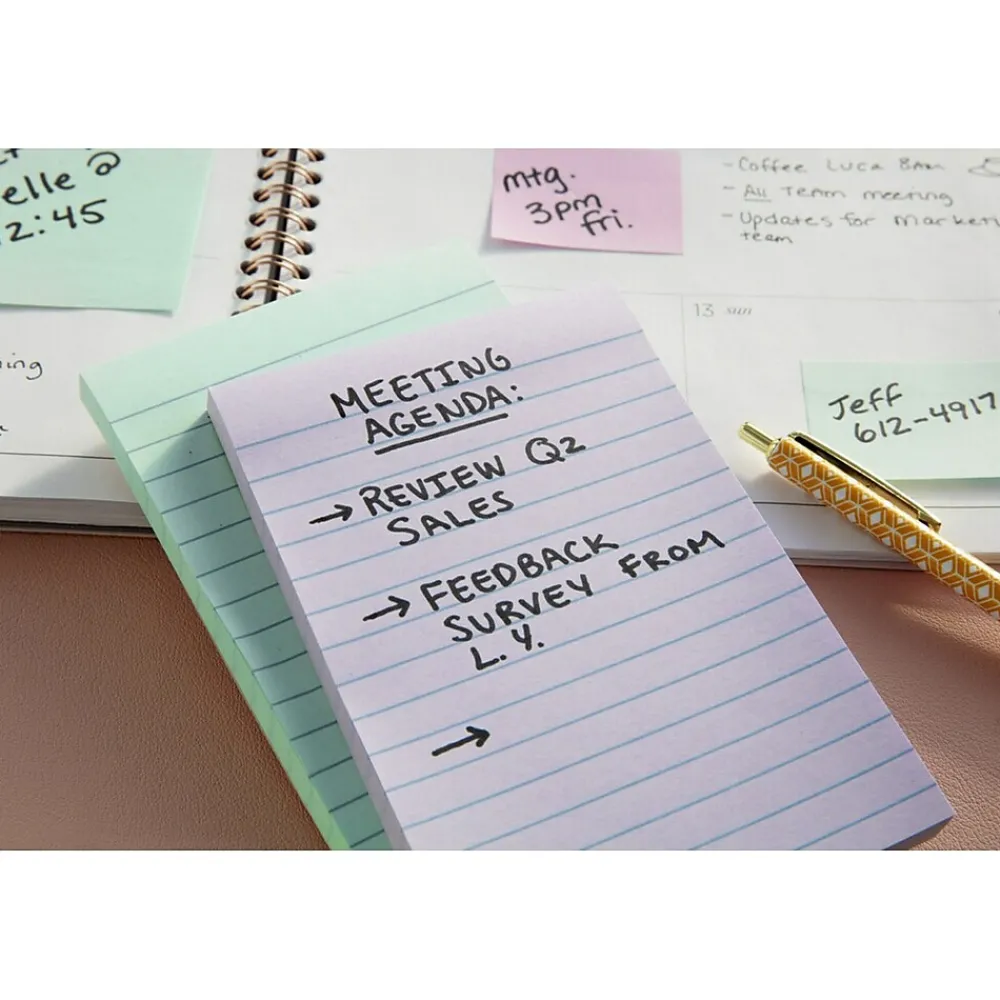 elle @
2:45
mtg.
3pm
fri.
- Coffee Luca 8am
- All Team meeting
- Updates for Market
team
13 sun
Jeff
612-4917
MEETING
AGENDA:
→ REVIEW Q2
SALES
→ FEEDBACK
SURVEY FROM
L.Y.
→